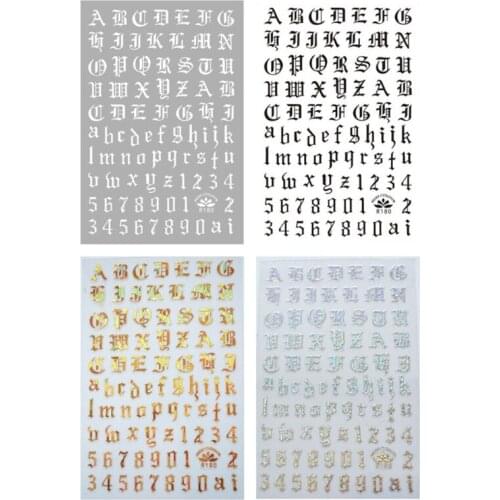 A B C D E F G
H I J K L M N
O P Q R S T U
V W X Y Z A B
C D E F G H I
a b c d e f g h i j k
l m n o p q r s t u
v w x y z 1 2 3 4
5 6 7 8 9 0 1 R180 2
3 4 5 6 7 8 9 0 a i
A B C D E F G
H I J K L M N
O P Q R S T U
V W X Y Z A B
C D E F G H I
a b c d e f g h i j k
l m n o p q r s t u
v w x y z 1 2 3 4
5 6 7 8 9 0 1 R180 2
3 4 5 6 7 8 9 0 a i
A B C D E F G
H I J K L M N
O P Q R S T U
V W X Y Z A B
C D E F G H I
a b c d e f g h i j k
l m n o p q r s t u
v w x y z 1 2 3 4
5 6 7 8 9 0 1 R180 2
3 4 5 6 7 8 9 0 a i
A B C D E F G
H I J K L M N
O P Q R S T U
V W X Y Z A B
C D E F G H I
a b c d e f g h i j k
l m n o p q r s t u
v w x y z 1 2 3 4
5 6 7 8 9 0 1 2
3 4 5 6 7 8 9 0 a i